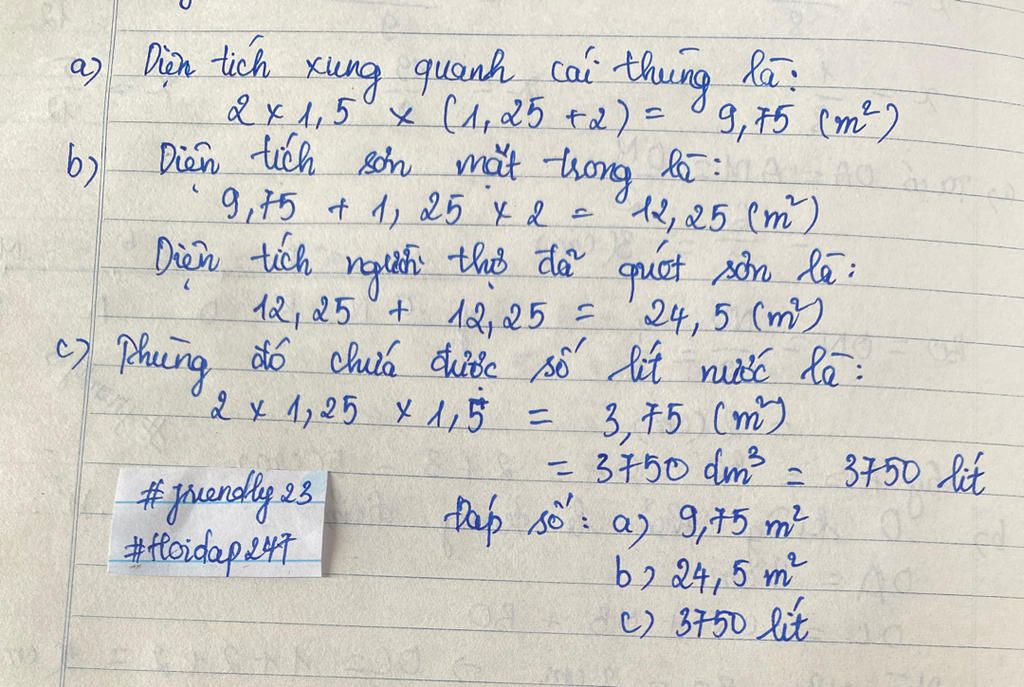 a) Diện tích xung quanh cái thùng là:
2 x 1,5 x (1,25 + 2) = 9,75 (m²)
b) Diện tích sơn mặt trong là:
9,75 + 1,25 x 2 = 12,25 (m²)
Diện tích người thợ đã quét sơn là:
12,25 + 12,25 = 24,5 (m²)
c) Thùng đó chứa được số lít nước là:
2 x 1,25 x 1,5 = 3,75 (m²)
= 3750 dm³ = 3750 lít
Đáp số: a) 9,75 m²
b) 24,5 m²
c) 3750 lít
#friendly23
#Hoidap247